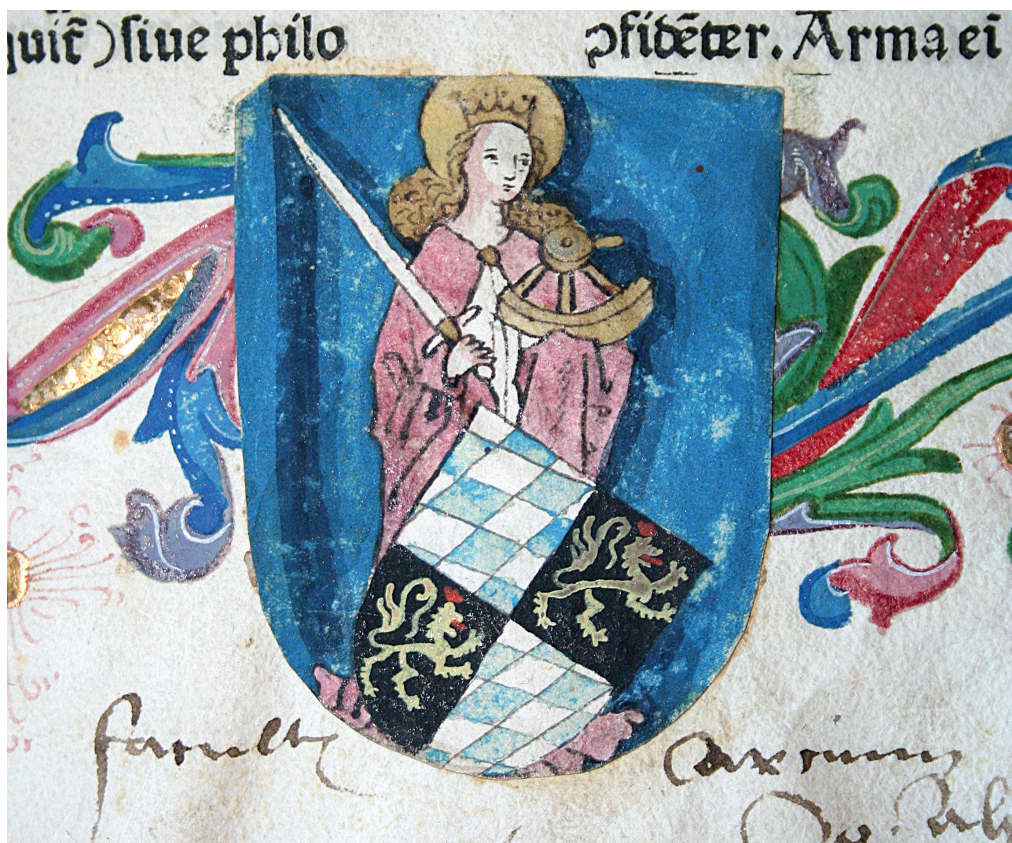 quit̃ ) siue philo
ꝯfidẽter. Arma ei
facult
Artium